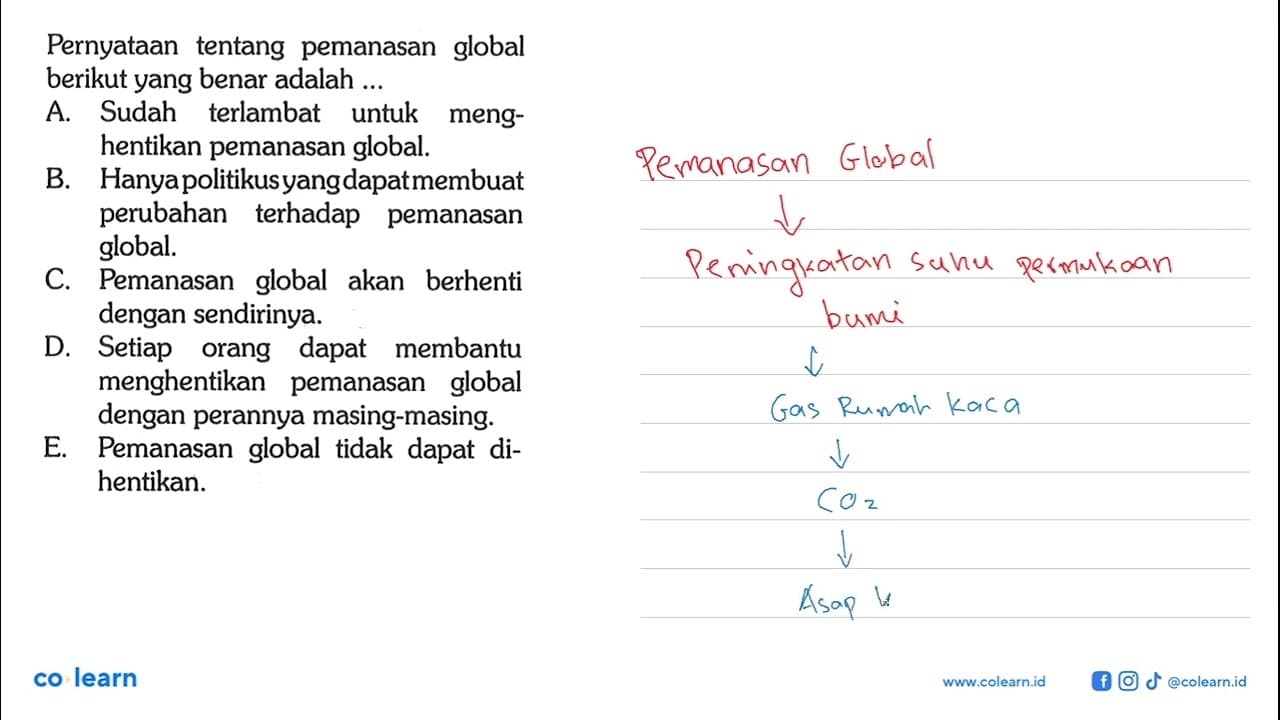 Pernyataan tentang pemanasan global
berikut yang benar adalah ...
A. Sudah terlambat untuk meng-
hentikan pemanasan global.
B. Hanya politikus yang dapat membuat
perubahan terhadap pemanasan
global.
C. Pemanasan global akan berhenti
dengan sendirinya.
D. Setiap orang dapat membantu
menghentikan pemanasan global
dengan perannya masing-masing.
E. Pemanasan global tidak dapat di-
hentikan.
Pemanasan Global
↓
Peningkatan suhu permukaan
bumi
↓
Gas Rumah kaca
↓
CO2
↓
Asap k
co learn
www.colearn.id
@colearn.id